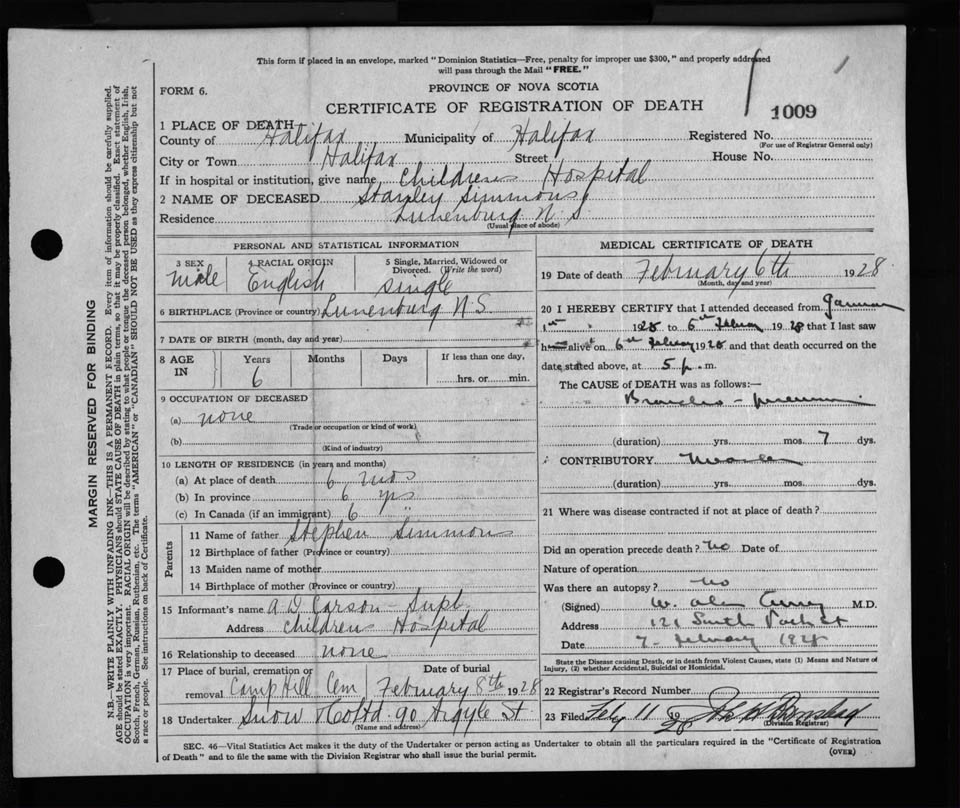 This form if placed in an envelope, marked "Dominion Statistics—Free, penalty for improper use $300," and properly addressed
will pass through the Mail "FREE."
FORM 6.
PROVINCE OF NOVA SCOTIA
CERTIFICATE OF REGISTRATION OF DEATH
1009
1 PLACE OF DEATH
County of Halifax Municipality of Halifax Registered No.
(For use of Registrar General only)
City or Town Halifax Street House No.
If in hospital or institution, give name Childrens Hospital
2 NAME OF DECEASED Stanley Simmons
Residence Lunenburg N.S.
(Usual place of abode)
PERSONAL AND STATISTICAL INFORMATION
3 SEX 4 RACIAL ORIGIN 5 Single, Married, Widowed or
Divorced. (Write the word)
Male English Single
6 BIRTHPLACE (Province or country) Lunenburg N.S.
7 DATE OF BIRTH (month, day and year)
8 AGE IN Years Months Days If less than one day,
6 hrs. or min.
9 OCCUPATION OF DECEASED
(a) none
(Trade or occupation or kind of work)
(b)
(Kind of industry)
10 LENGTH OF RESIDENCE (in years and months)
(a) At place of death 6 mos
(b) In province 6 yrs
(c) In Canada (if an immigrant) 6 "
Parents
11 Name of father Stephen Simmons
12 Birthplace of father (Province or country)
13 Maiden name of mother
14 Birthplace of mother (Province or country)
15 Informant's name A D Carson - Supt.
Address Childrens Hospital
16 Relationship to deceased none
17 Place of burial, cremation or Date of burial
removal Camp Hill Cem February 8th 1928
18 Undertaker Snow & Co Ltd 90 Argyle St.
(Name and address)
MEDICAL CERTIFICATE OF DEATH
19 Date of death February 6th 1928
(Month, day and year)
20 I HEREBY CERTIFY that I attended deceased from
1st 1928 to 6th February 1928 that I last saw
h alive on 6th February 1928 and that death occurred on the
date stated above, at 5 p. m.
The CAUSE of DEATH was as follows:—
Broncho-pneumonia
(duration) yrs. mos. 7 dys.
CONTRIBUTORY Measles
(duration) yrs. mos. dys.
21 Where was disease contracted if not at place of death?
Did an operation precede death? No Date of
Nature of operation
Was there an autopsy? No
(Signed) W. Alan Curry M.D.
Address 121 South Park St
Date 7 February 1928
State the Disease causing Death, or in death from Violent Causes, state (1) Means and Nature of
Injury, (2) whether Accidental, Suicidal or Homicidal.
22 Registrar's Record Number
23 Filed Feby 11 1928
(Division Registrar)
SEC. 46—Vital Statistics Act makes it the duty of the Undertaker or person acting as Undertaker to obtain all the particulars required in the "Certificate of Registration
of Death" and to file the same with the Division Registrar who shall issue the burial permit. (OVER)
MARGIN RESERVED FOR BINDING
N.B.—WRITE PLAINLY WITH UNFADING INK—THIS IS A PERMANENT RECORD. Every item of information should be carefully supplied.
AGE should be stated EXACTLY. PHYSICIANS should STATE CAUSE OF DEATH in plain terms, so that it may be properly classified. Exact statement of
OCCUPATION is very important. RACIAL ORIGIN will be described by stating to what people or tongue the deceased person belonged, whether English, Irish,
Scotch, French, German, Russian, Ruthenian, etc. The terms "AMERICAN" or "CANADIAN" SHOULD NOT BE USED as they express citizenship but not
a race or people. See instructions on back of Certificate.